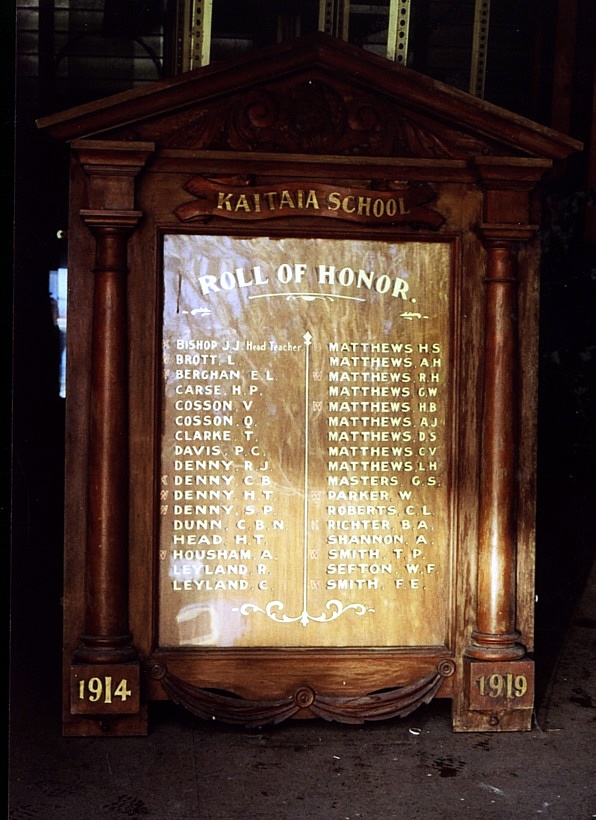 KAITAIA SCHOOL
ROLL OF HONOR.
BISHOP J.J. Head Teacher
BROTT, L
BERGHAN, E.L.
CARSE, H.P.
COSSON, V
COSSON, O.
CLARKE, T.
DAVIS, P.C.
DENNY, R.J
DENNY, C.B
DENNY, H.T.
DENNY, S.P.
DUNN, C.B.N.
HEAD, H.T.
HOUSHAM, A.
LEYLAND R.
LEYLAND, C.
MATTHEWS H.S
MATTHEWS, A.H
MATTHEWS, R.H
MATTHEWS, G.W
MATTHEWS, H.B
MATTHEWS, A.J
MATTHEWS, D.S
MATTHEWS, C.V
MATTHEWS, L.H
MASTERS, G.S.
PARKER, W
ROBERTS, C.L.
RICHTER, B.A.
SHANNON, A.
SMITH, T.P.
SEFTON, W.F.
SMITH, F.E.
1914
1919